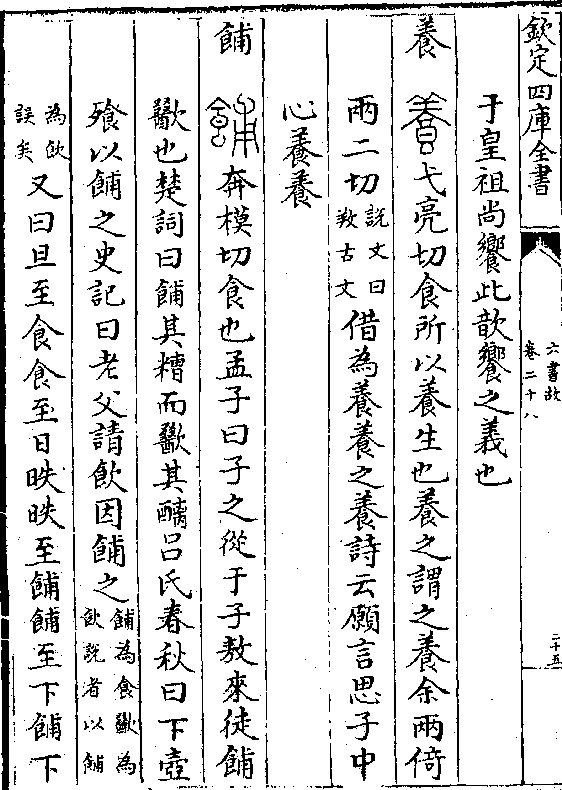 欽定四庫全書
六書故
卷二十八
二十五
于皇祖尚饗此歆饗之義也
養 弋亮切食所以養生也養之謂之養余兩倚
兩二切說文曰𢼝古文借為養養之養詩云願言思子中
心養養
餔 奔模切食也孟子曰子之從于子敖來徒餔
歠也楚詞曰餔其糟而歠其醨吕氏春秋曰下壺
飱以餔之史記曰老父請飲因餔之餔為食歠為飲說者以餔
為飲誤矣又曰旦至食食至日昳昳至餔餔至下餔下